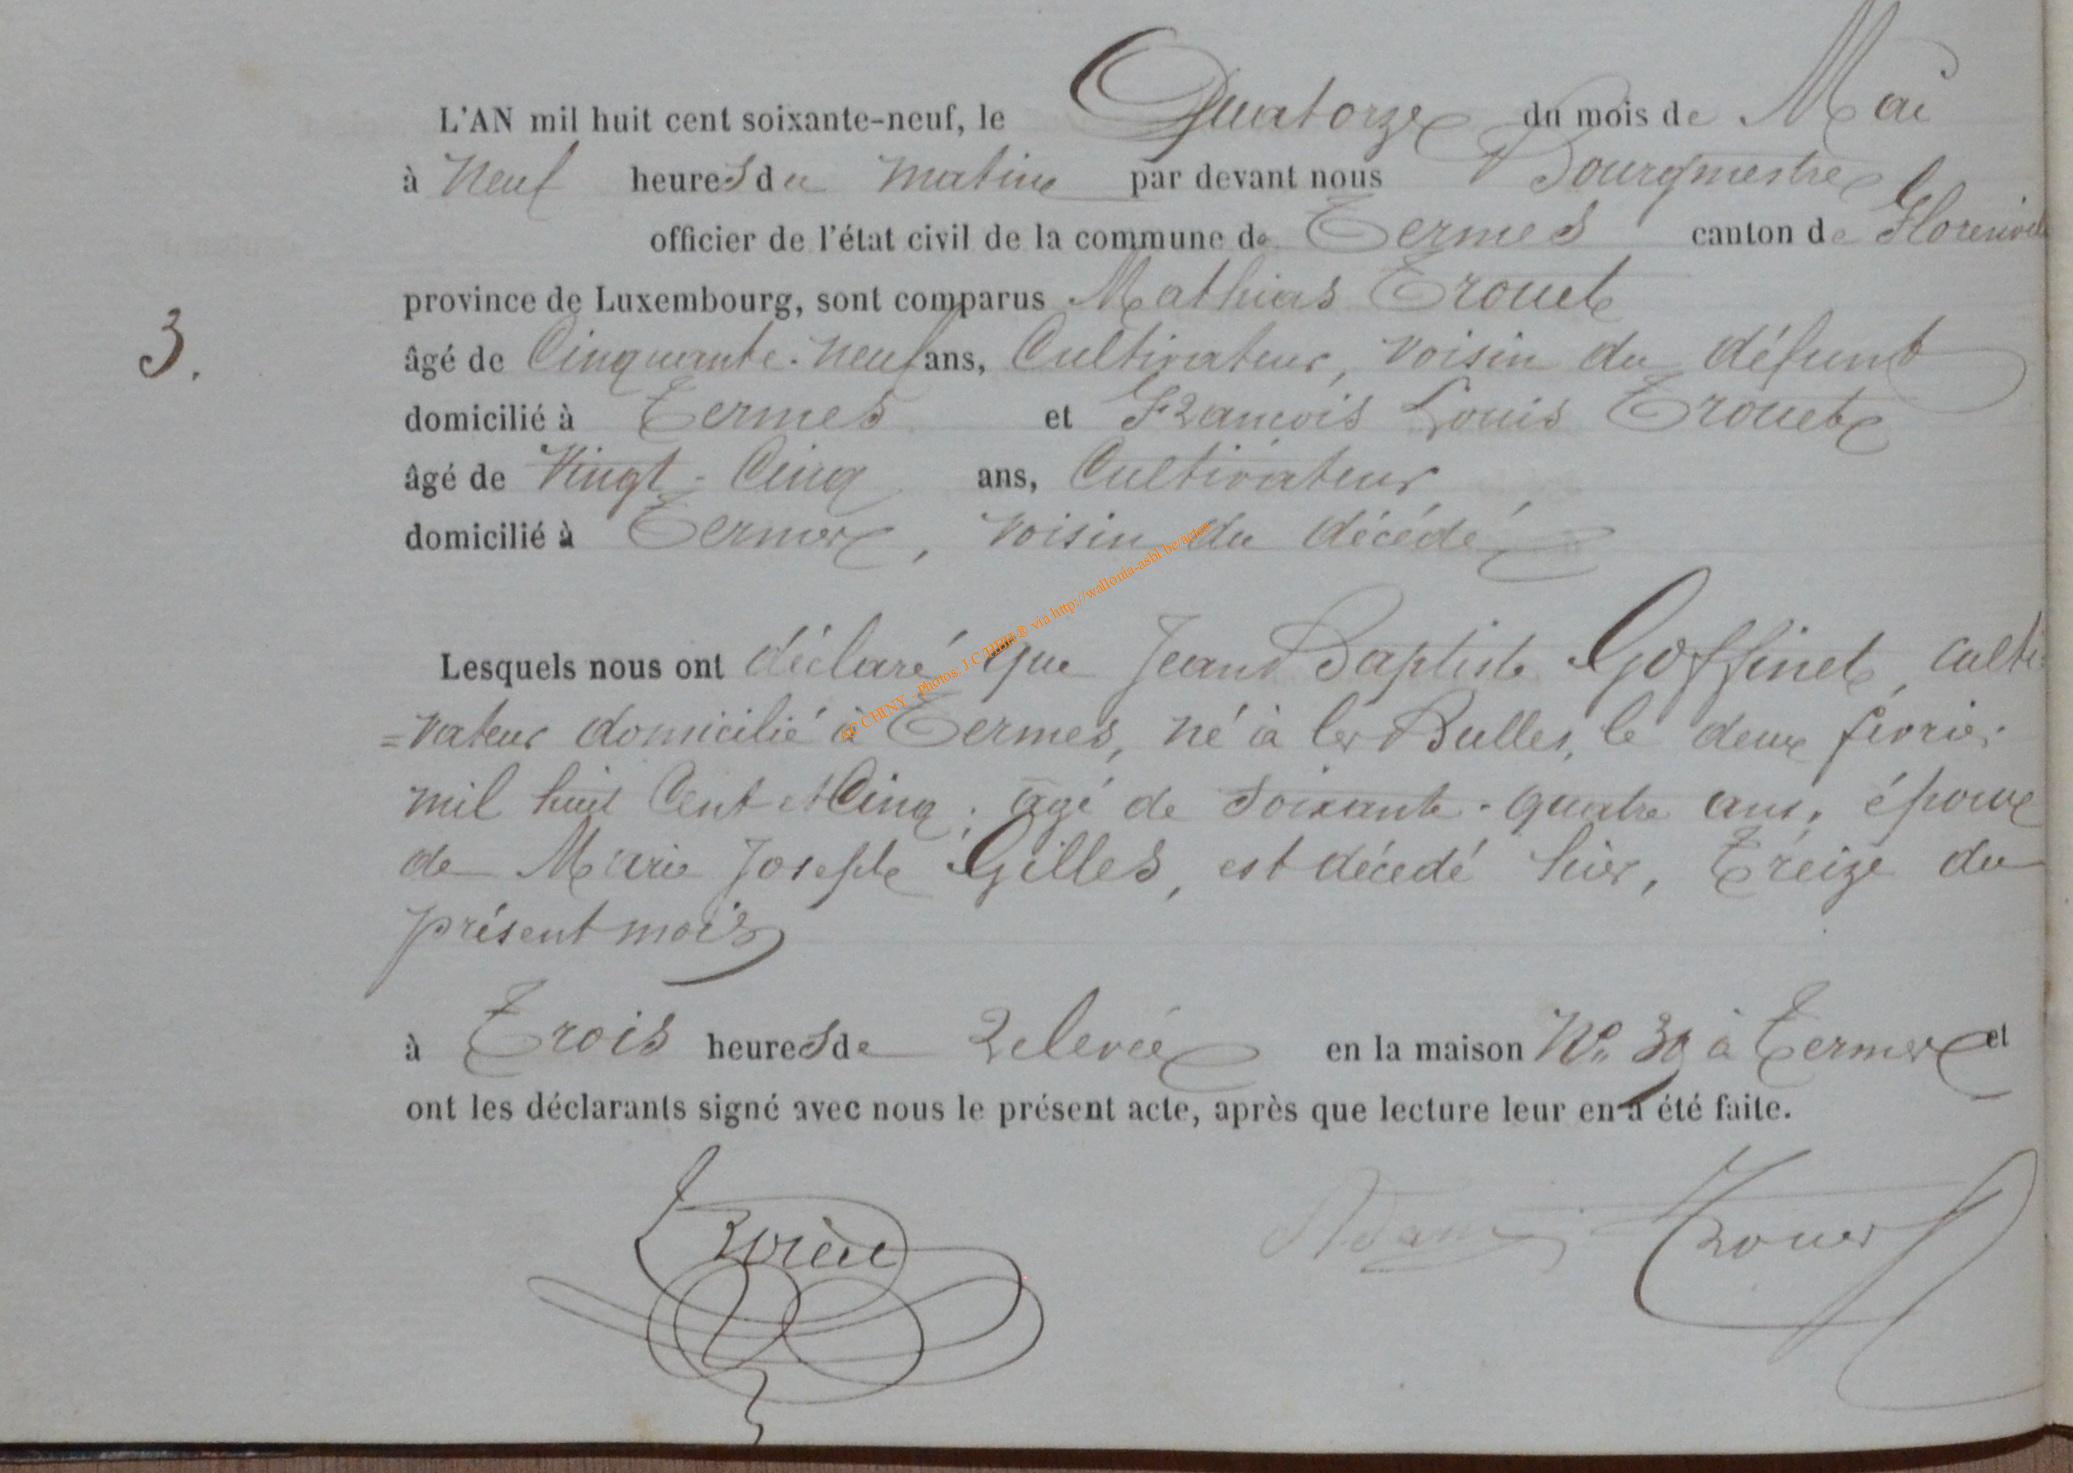 L'AN mil huit cent soixante-neuf, le Quatorze du mois de Mai
à Neuf heures du matin par devant nous Bourgmestre
officier de l'état civil de la commune de Termes canton de Florenville
province de Luxembourg, sont comparus Mathias Trouet
3.
âgé de Cinquante-neuf ans, Cultivateur, voisin du défunt
domicilié à Termes et François Louis Trouet
âgé de Vingt-Cinq ans, Cultivateur
domicilié à Termes, voisin du décédé
AC CHINY - Photos: J C HBH ® via http://wallonia-asbl.be/actes
Lesquels nous ont déclaré que Jean Baptiste Goffinet, culti
=vateur domicilié à Termes, né à les Bulles, le deux février
mil huit Cent et Cinq, âgé de Soixante-quatre ans, époux
de Marie Joseph Gilles, est décédé hier, Treize du
présent mois
à Trois heures de relevée en la maison No. 39 à Termes et
ont les déclarants signé avec nous le présent acte, après que lecture leur en a été faite.
Adam Trouet